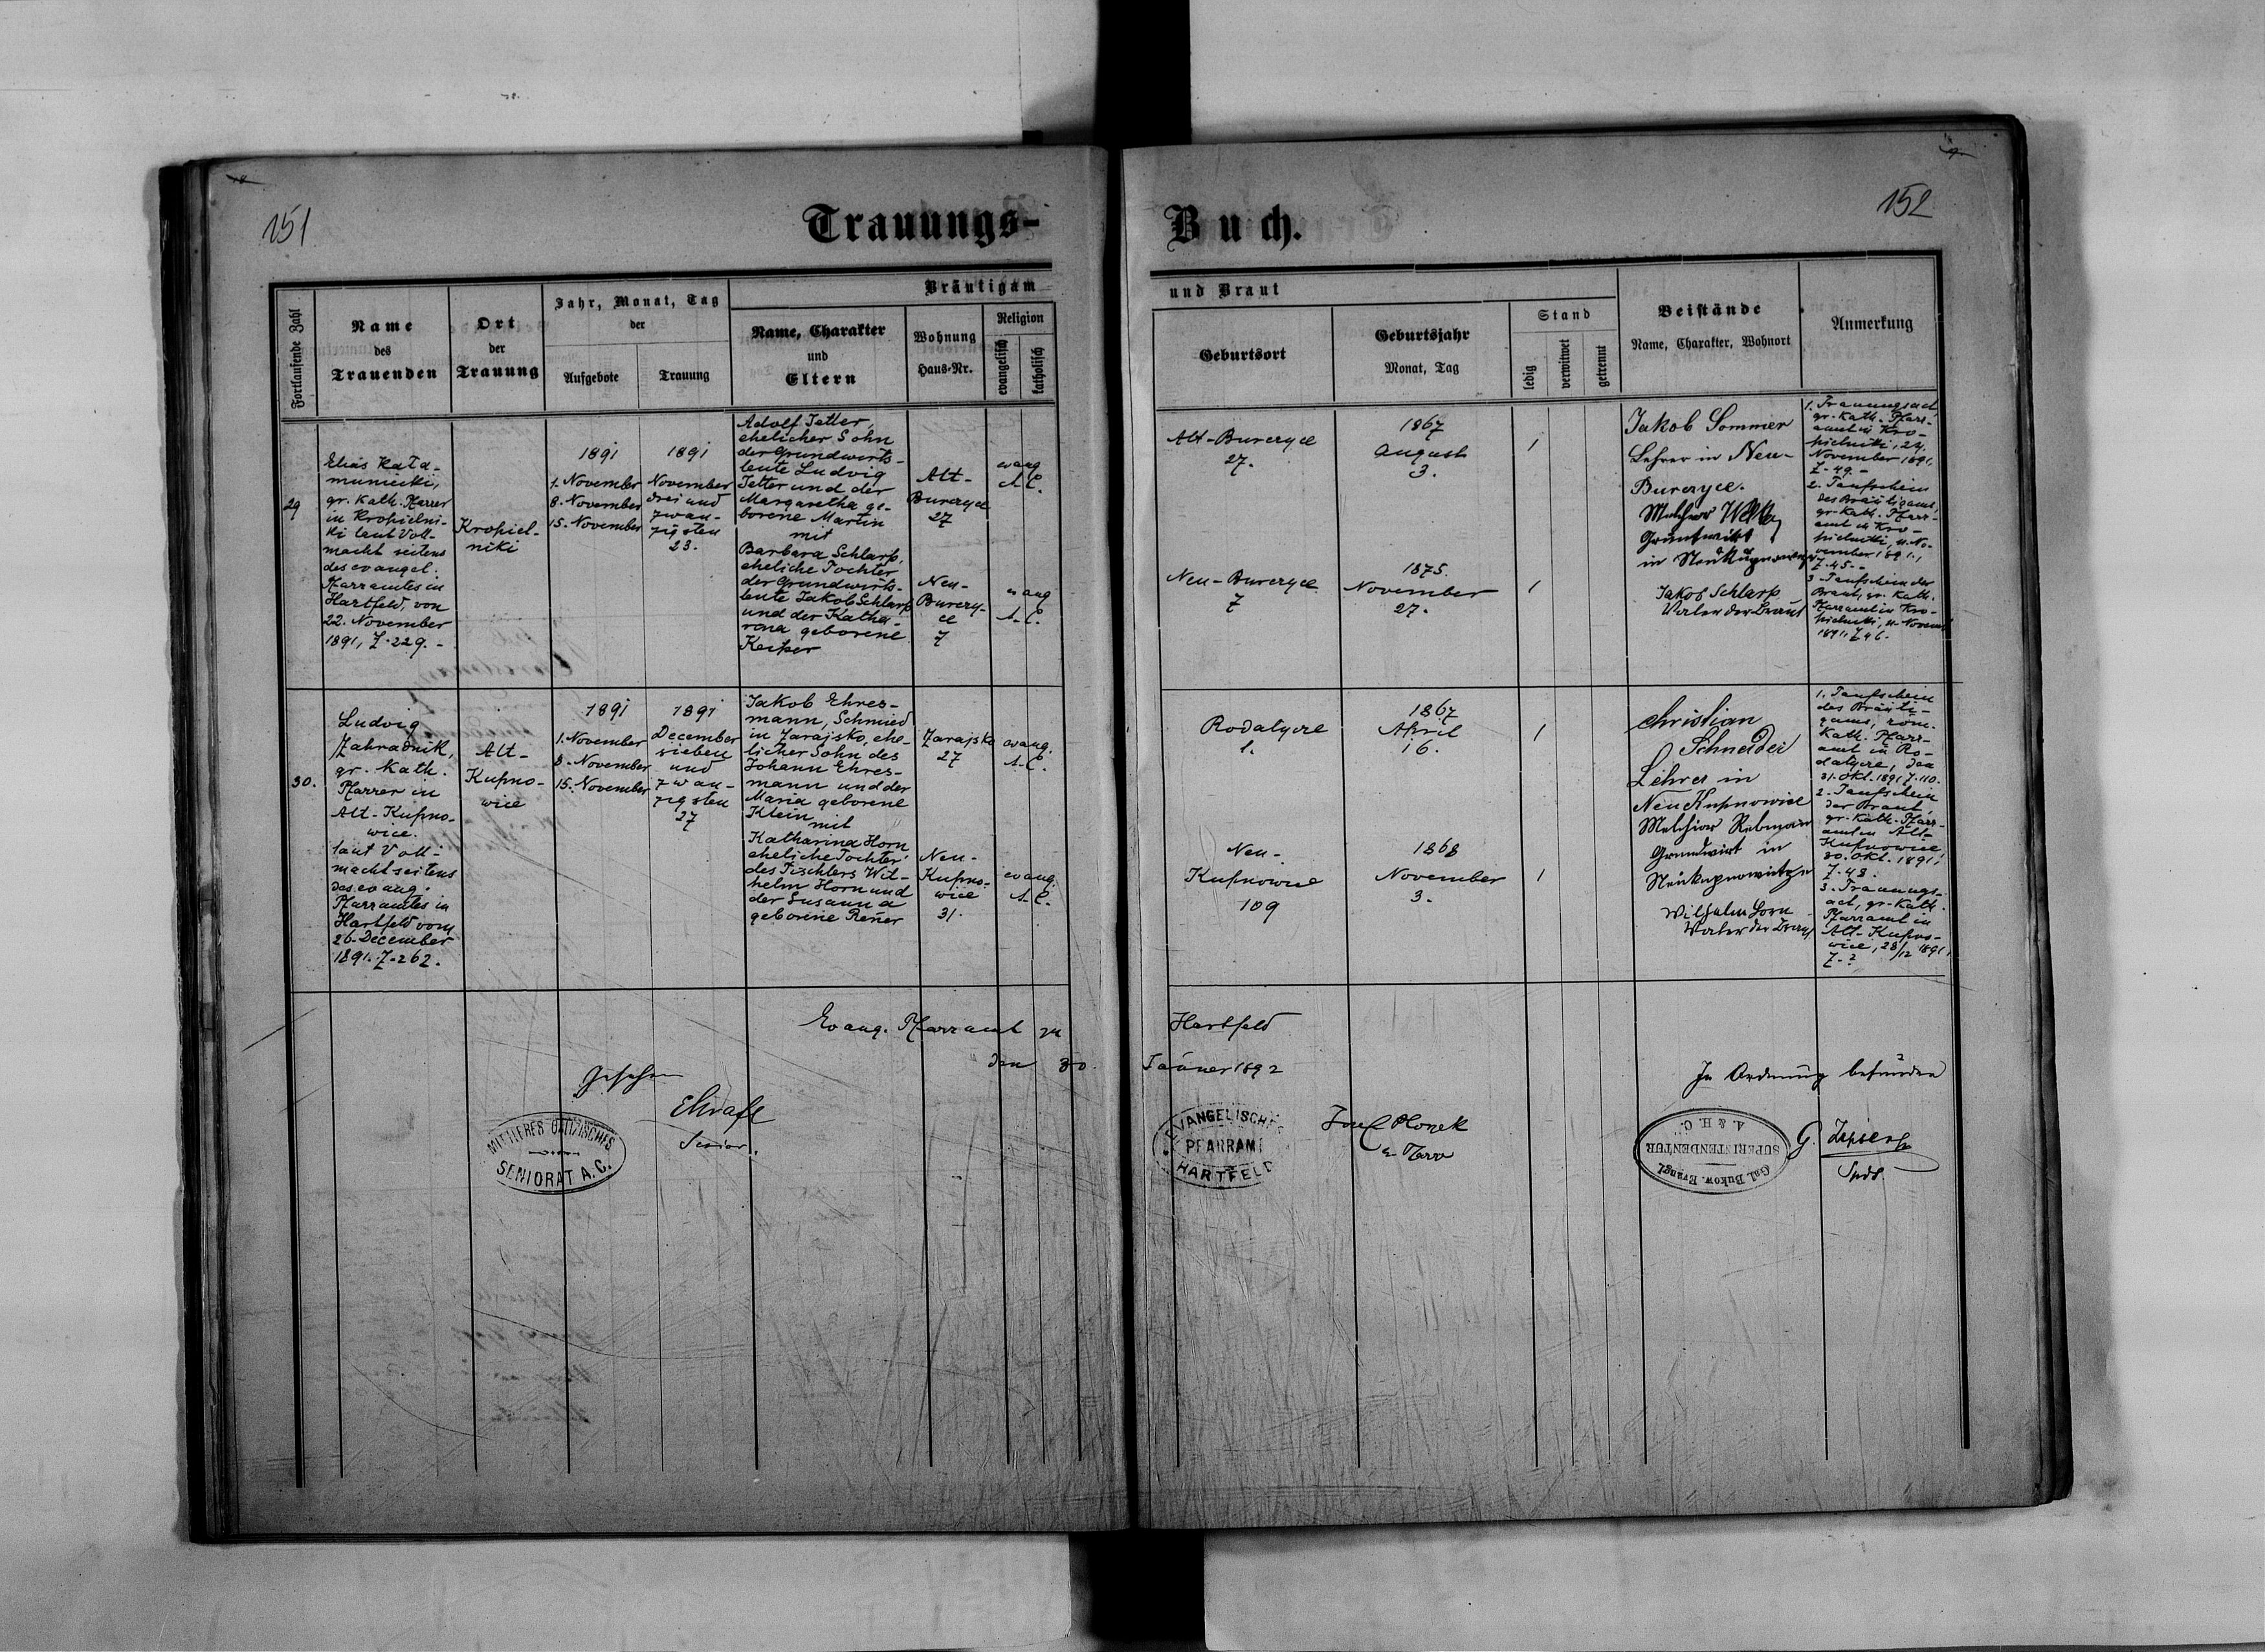 151
152
Trauungs-
Buch.
Fortlaufende Zahl
Name
des
Trauenden
Ort
der
Trauung
Jahr, Monat, Tag
der
Aufgebote
Trauung
Bräutigam
und Braut
Name, Charakter
und
Eltern
Wohnung
Haus-Nr.
Religion
evangelisch
katholisch
Geburtsort
Geburtsjahr
Monat, Tag
Stand
ledig
verwitwet
getrennt
Beistände
Name, Charakter, Wohnort
Anmerkung
29
Elias Kata-
muniecki,
gr. kath. Pfarrer
in Kropielni-
ki laut Voll-
macht seitens
des evangel.
Pfarramtes in
Hartfeld, von
22. November
1891, Z. 229. -
Kropiel-
niki
1891
1. November
8. November
15. November
1891
November
drei und
zwan-
zigsten
23.
Adolf Jetter,
ehelicher Sohn
der Grundwirts-
leute Ludvig
Jetter und der
Margaretha ge-
borene Martin
mit
Barbara Schlarp,
eheliche Tochter
der Grundwirts-
leute Jakob Schlarp
und der Katha-
rina geborene
Keiper
Alt-
Burczyce
27
Neu-
Burczy-
ce
7
evang
A. C.
evang
A. C.
Alt-Burczyce
27.
Neu-Burczyce
7
1867
August
3.
1875.
November
27.
1
1
Jakob Sommer
Lehrer in Neu-
Burczyce.
Melchior
Grundwirt
in
Jakob Schlarp
Vater der Braut
1. Trauungsact,
gr. kath. Pfarr-
amt in Kro-
pielniki, 24.
November 1891,
Z. 49. -
2. Taufschein
des Bräutigams,
gr. kath. Pfarr-
amt in Kro-
pielniki, 11. No-
vember 1891.,
Z. 45. -
3. Taufschein der
Braut, gr. kath.
Pfarramt in Kro-
pielniki, 11. Novemb
1891, Z 46.
30.
Ludvig
Zahradnik,
gr. kath.
Pfarrer in
Alt-Kupno-
wice.
laut Voll-
macht seitens
des evang.
Pfarramtes in
Hartfeld vom
26. December
1891. Z. 262.
Alt-
Kupno-
wice
1891
1. November
8. November
15. November
1891
December
sieben
und
zwan-
zigsten
27
Jakob Ehres-
mann, Schmied
in Zarajsko, ehe-
licher Sohn des
Johann Ehres-
mann und der
Maria geborene
Klein
mit
Katharina Horn
eheliche Tochter
des Tischlers Wil-
helm Horn und
der Susanna
geborene Rener
Zarajsko
27
Neu-
Kupno-
wice
31.
evang.
A. C.
evang.
A. C.
Rodatycze
1.
Neu-
Kupnowice
109
1867
April
16.
1868
November
3.
1
1
Christian
Schneider
Lehrer in
Neu Kupnowice
Melchior Rebmann
Grundwirt in
Neukupnowitze
Wilhelm Horn
Vater der Braut
1. Taufschein
des Bräuti-
gams, röm.
kath. Pfarr-
amt in Ro-
datycze, den
31. Okt. 1891 Z. 110.
2. Taufschein
der Braut,
gr. kath. Pfarr-
amt in Alt-
Kupnowice
30. Okt. 1891,
Z. 43.
3. Trauungs-
act, gr. kath.
Pfarramt in
Alt-Kupno-
wice, 28/12 1891,
Z. ?
Evang. Pfarramt zu Hartfeld
den 30. Jänner 1892
Gesehen
Senior.
MITTLERES GALIZISCHES
SENIORAT A. C.
EVANGELISCHES
PFARRAMT
HARTFELD
Josef Ploszek
ev. Pfarrer
In Ordnung befunden
Gal. Bukow. Evangl.
SUPERINTENDENTUR
A. & H. C.
Spdt.